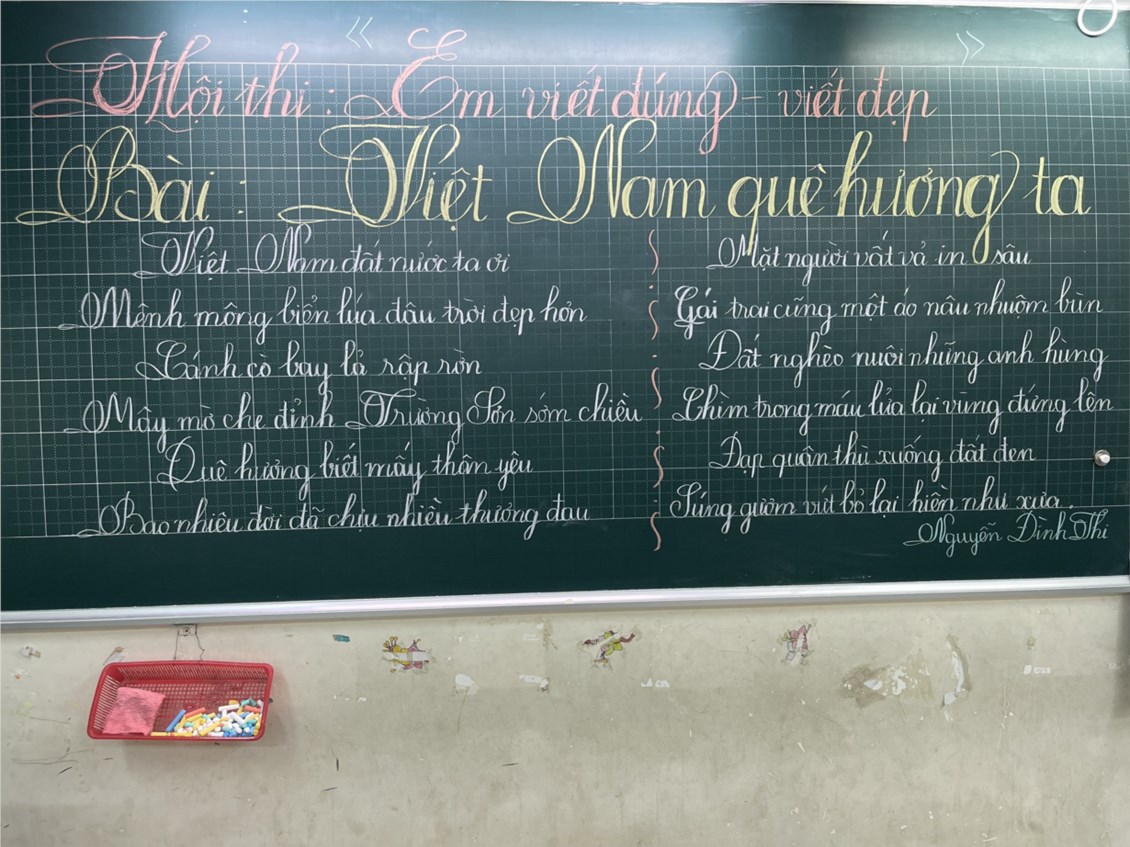 Hội thi: Em viết đúng - viết đẹp
Bài: Việt Nam quê hương ta
Việt Nam đất nước ta ơi
Mênh mông biển lúa đâu trời đẹp hơn
Cánh cò bay lả rập rờn
Mây mờ che đỉnh Trường Sơn sớm chiều
Quê hương biết mấy thân yêu
Bao nhiêu đời đã chịu nhiều thương đau
Mặt người vất vả in sâu
Gái trai cũng một áo nâu nhuộm bùn
Đất nghèo nuôi những anh hùng
Chìm trong máu lửa lại vùng đứng lên
Đạp quân thù xuống đất đen
Súng gươm vứt bỏ lại hiền như xưa.
Nguyễn Đình Thi